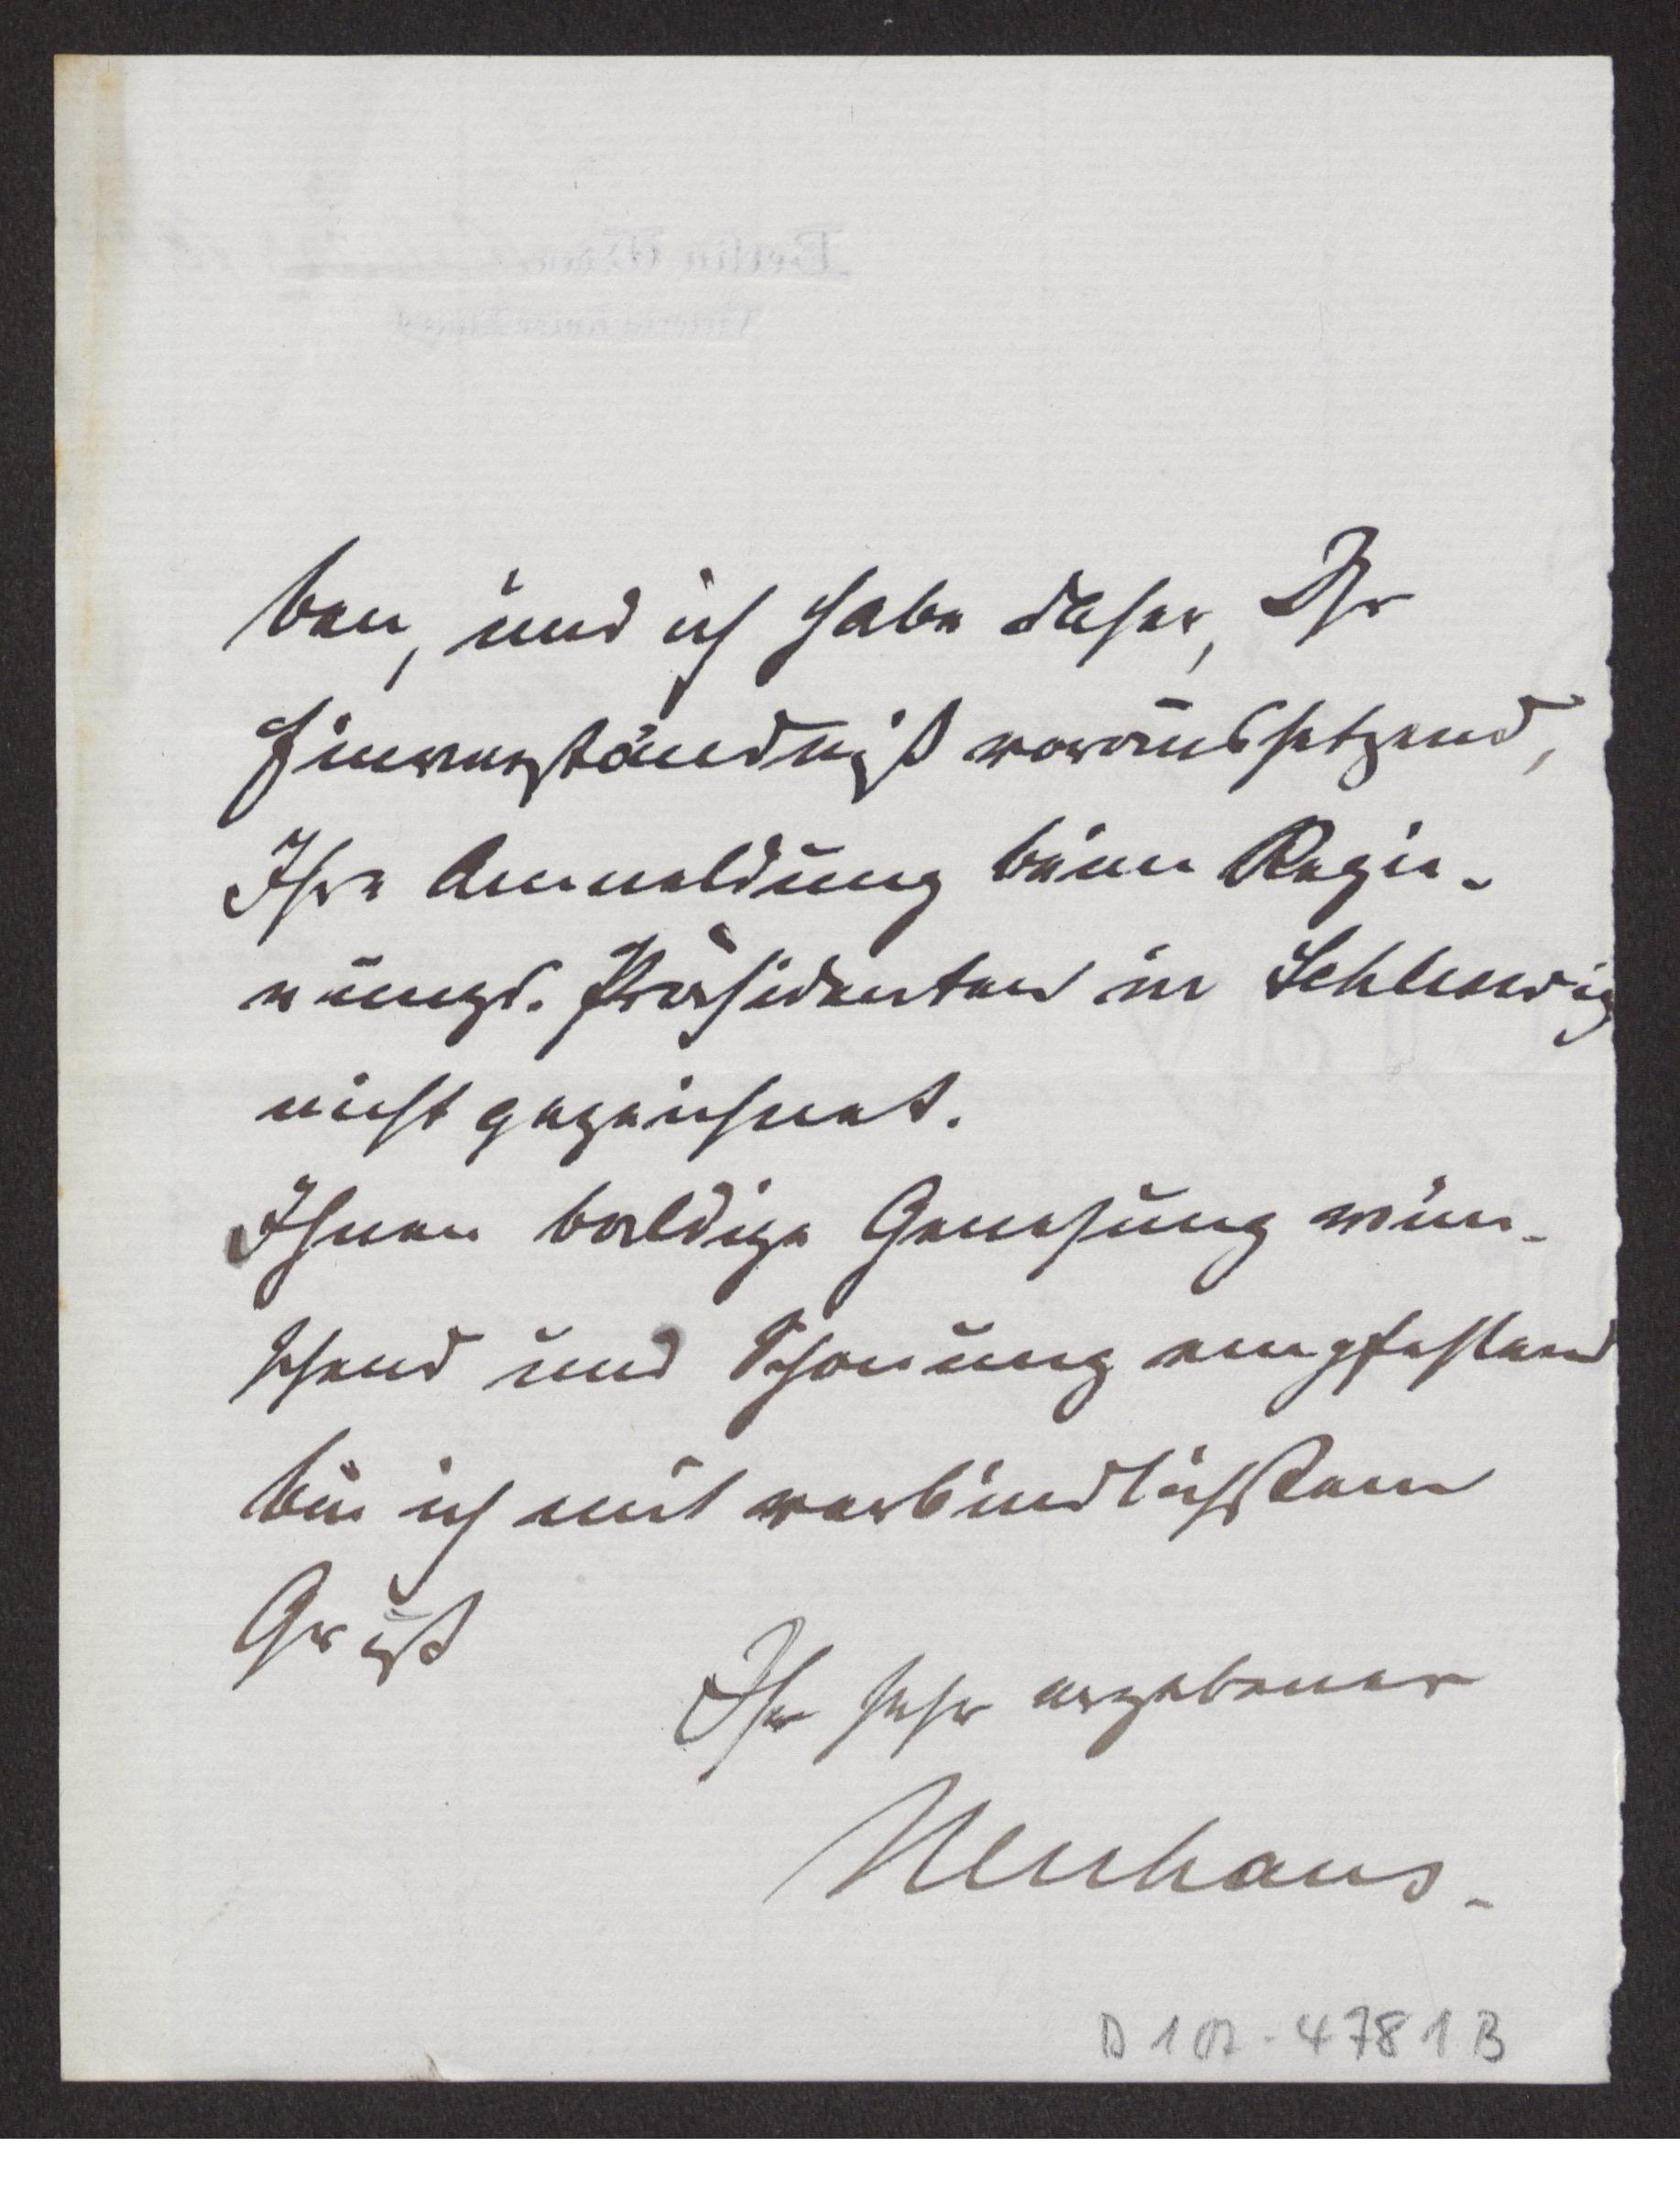 ben, und ich habe daher, Ihr
Einverständniß voraussetzend,
Ihre Anmeldung beim Regie-
rungs-Präsidenten in Schleswig
nicht gezeichnet.
Ihnen baldige Genesung wün-
schend und Schonung empfehlend
bin ich mit verbindlichstem
Gruß
Ihr sehr ergebener
Neuhaus.
4781 B